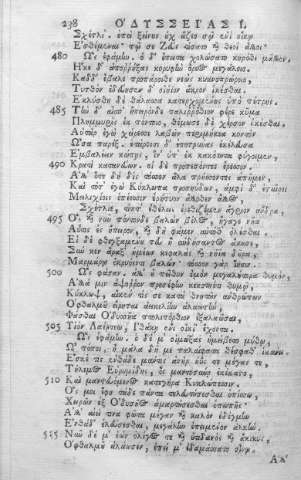 238 Ο'ΔΥΣΣΕΙΑΣ Ι.
Σχέτλι', ἐπεὶ ξείνους οὐχ ἅζεο σῷ ἐνὶ οἴκῳ
Ἐσθέμεναι· τῷ σε Ζεὺς τίσατο καὶ θεοὶ ἄλλοι.
480 Ὣς ἐφάμην· ὁ δ' ἔπειτα χολώσατο κηρόθι μᾶλλον,
Ἧκε δ' ἀπορρήξας κορυφὴν ὄρεος μεγάλοιο,
Κὰδ δ' ἔβαλε προπάροιθε νεὸς κυανοπρῴροιο,
Τυτθὸν ἐδεύησεν δ' οἰήϊον ἄκρον ἱκέσθαι.
Ἐκλύσθη δὲ θάλασσα κατερχομένης ὑπὸ πέτρης.
485 Τὴν δ' αἶψ' ἤπειρόνδε παλιρρόθιον φέρε κῦμα
Πλημμυρὶς ἐκ πόντοιο, θέμωσε δὲ χέρσον ἱκέσθαι.
Αὐτὰρ ἐγὼ χείρεσσι λαβὼν περιμήκεα κοντὸν
Ὦσα παρέξ. ἑτάροισι δ' ἐποτρύνας ἐκέλευσα
Ἐμβαλέειν κώπῃς, ἵν' ὑπ' ἐκ κακότητα φύγοιμεν,
490 Κρατὶ κατανεύων. οἱ δὲ προπεσόντες ἔρεσσον.
Ἀλλ' ὅτε δὴ δὶς τόσσον ἅλα πρήσσοντες ἀπῆμεν,
Καὶ τότ' ἐγὼ Κύκλωπα προσηύδων, ἀμφὶ δ' ἑταῖροι
Μειλιχίοις ἐπέεσσιν ἐρήτυον ἄλλοθεν ἄλλος.
Σχέτλιε, τίπτ' ἐθέλεις ἐρεθιζέμεν ἄγριον ἄνδρα,
495 Ὃς καὶ νῦν πόντονδε βαλὼν βέλος, ἤγαγε νῆα
Αὖτις ἐς ἤπειρον, καὶ δὴ φάμεν αὐτόθ' ὀλέσθαι.
Εἰ δὲ φθεγξαμένου τευ ἢ αὐδήσαντος ἄκουσε,
Σύν κεν ἄραξ' ἡμέων κεφαλὰς καὶ νήϊα δοῦρα,
Μαρμάρῳ ὀκριόεντι βαλών· τόσσον γὰρ ἵησιν.
500 Ὣς φάσαν. ἀλλ' οὐ πεῖθον ἐμὸν μεγαλήτορα θυμόν,
Ἀλλά μιν ἄψορρον προσέφην κεκοτηότι θυμῷ,
Κύκλωψ, αἴκεν τίς σε καταθνητῶν ἀνθρώπων
Ὀφθαλμοῦ εἴρηται ἀεικελίην ἀλαωτύν,
Φάσθαι Ὀδυσσῆα πτολιπόρθιον ἐξαλαῶσαι,
505 Υἱὸν Λαέρτεω, Ἰθάκῃ ἔνι οἰκί' ἔχοντα.
Ὣς ἐφάμην. ὁ δέ μ' οἰμώξας ἠμείβετο μύθῳ,
Ὢ πόποι, ἦ μάλα δή με παλαίφατα θέσφαθ' ἱκάνει.
Ἔσκέ τις ἐνθάδε μάντις ἀνὴρ ἠΰς τε μέγας τε,
Τήλεμος Εὐρυμίδης, ὃς μαντοσύνῃ ἐκέκαστο,
510 Καὶ μαντευόμενος κατεγήρα Κυκλώπεσσιν.
Ὅς μοι ἔφη τάδε πάντα τελευτήσεσθαι ὀπίσσω,
Χειρῶν ἐξ Ὀδυσῆος ἁμαρτήσεσθαι ὀπωπῆς.
Ἀλλ' αἰεί τινα φῶτα μέγαν καὶ καλὸν ἐδέγμην
Ἐνθάδ' ἐλεύσεσθαι, μεγάλην ἐπιειμένον ἀλκήν.
515 Νῦν δέ μ' ἐὼν ὀλίγος τε καὶ οὐτιδανὸς καὶ ἄκικυς,
Ὀφθαλμοῦ ἀλάωσεν, ἐπεί μ' ἐδαμάσσατο οἴνῳ.
Ἀλλ'